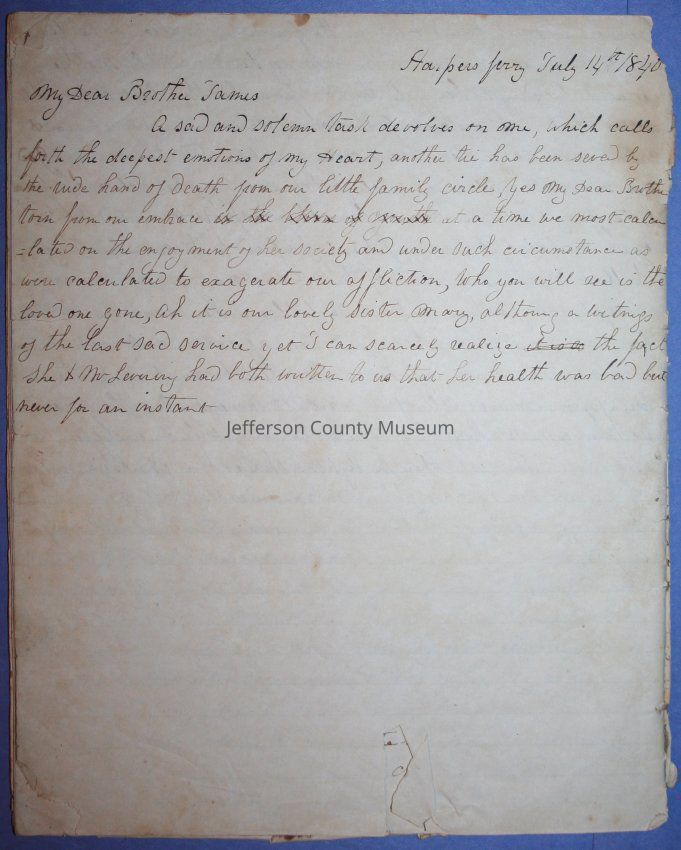 1
Harpers ferry July 14th 1840
My Dear Brother James
A sad and solemn task devolves on me, which calls
forth the deepest emotions of my Heart, another tie has been severd by
the rude hand of death from our little family circle, Yes My Dear Brothe
torn from our embrace in the bloom of youth at a time we most calcu
=lated on the enjoyment of her society and under such circumstance as
were calculated to exagerate our affliction, Who you will see is the
loved one gone, Ah it is our lovely sister Mary, although a witness
of the last sad service yet I can scarcely realize it is a the fact
She & Mr Levering had both written to us that her health was bad but
never for an instant
Jefferson County Museum